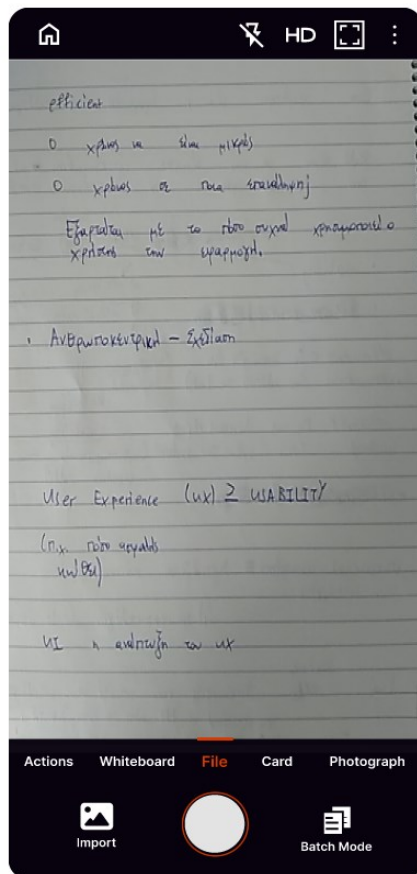 HD
efficient
Ο χρόνος να είναι μικρός
Ο χρόνος σε ποια επανάληψη;
Εξαρτάται με το πόσο συχνά χρησιμοποιεί ο
χρήστης την εφαρμογή.
· Ανθρωποκεντρική – Σχεδίαση
User Experience (UX) ≥ USABILITY
(π.χ. πόσο
UI η ανάπτυξη του UX
Actions Whiteboard File Card Photograph
Import Batch Mode